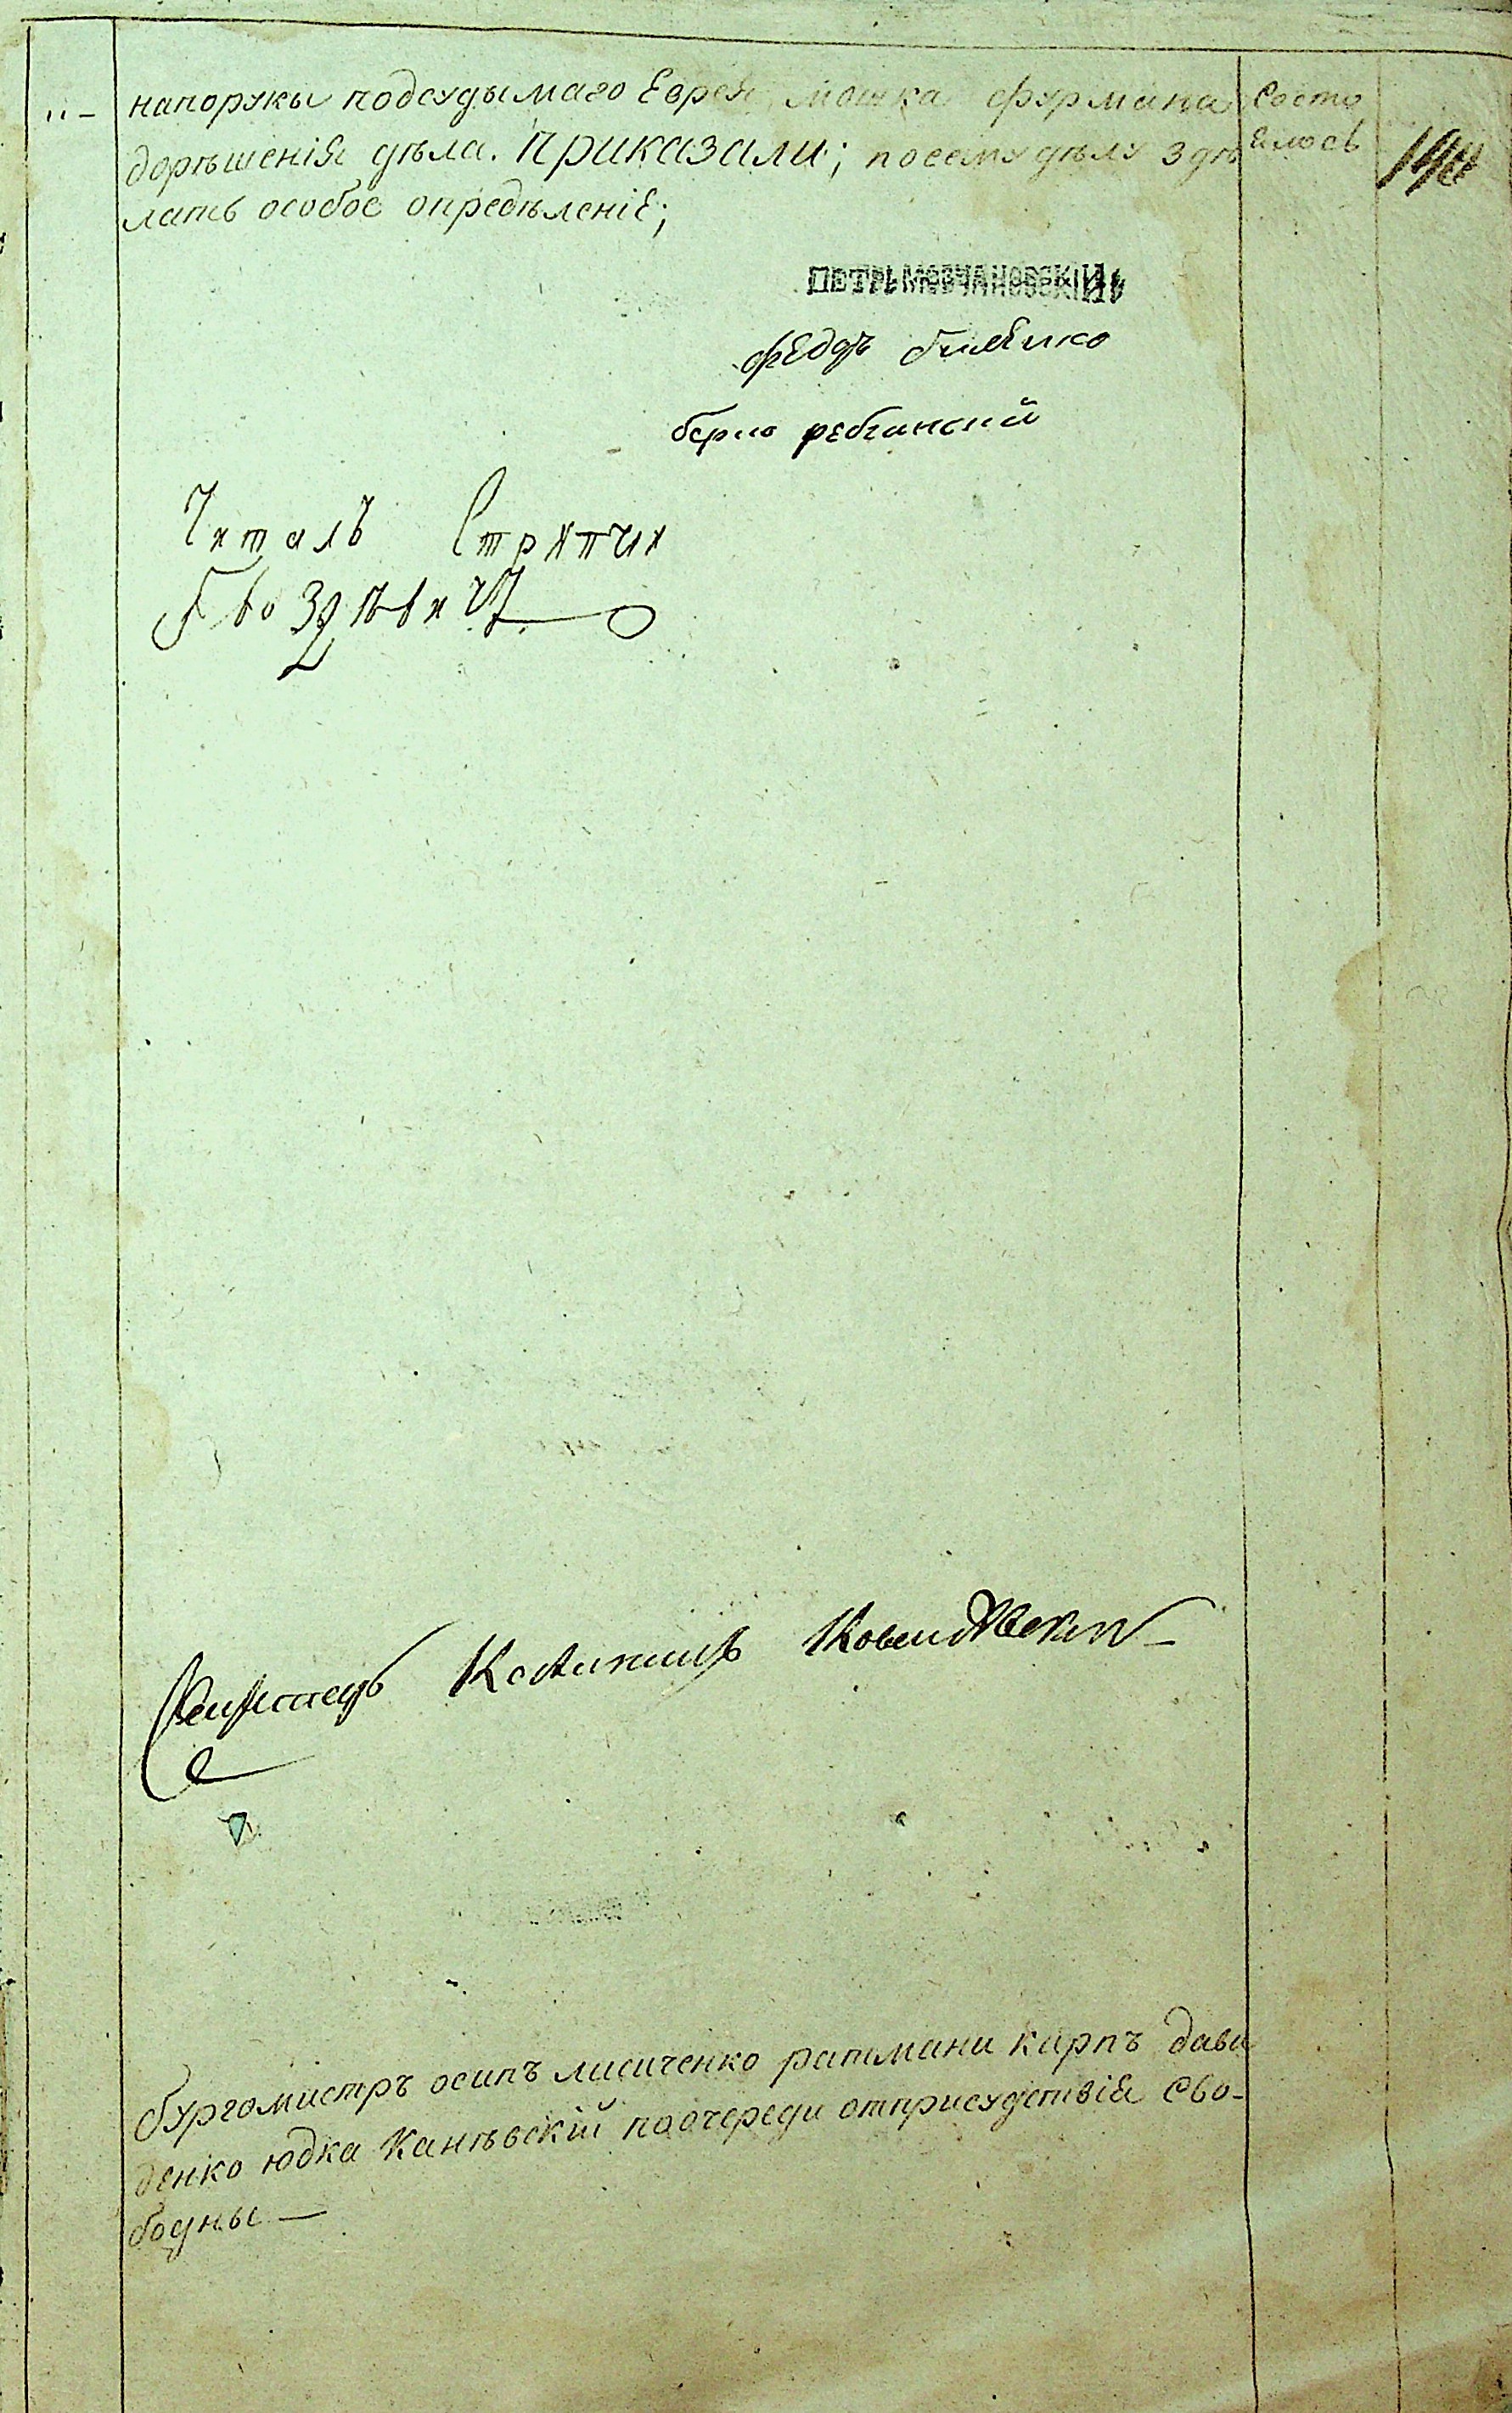 напоруки подсудымаго Еврея мошка фурмана
дорѣшенія дѣла. Приказали; посему дѣлу здѣ
лать особое опредѣленіе;
Состо
ялось
ПЕТРЪ МОВЧАНОВСКІЙ
федоръ
берко
Читалъ Стряпчи
Гвоздѣвичъ
бургомистръ осипъ лисиченко ратмани карпъ дави
денко юдка Канѣвскій поочереди отприсудствія сво-
бодны —